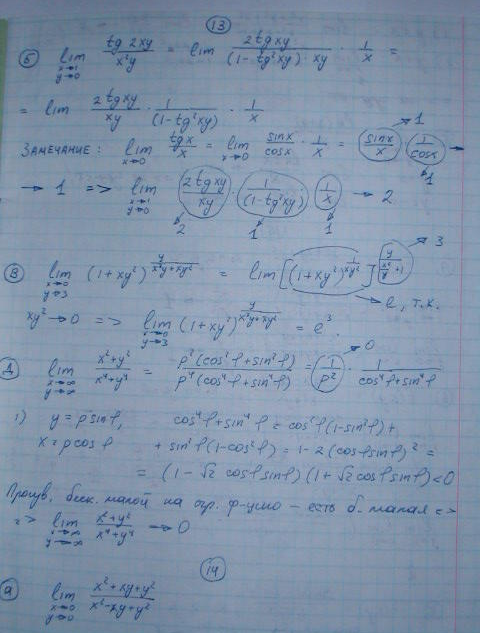 13
Б lim x→1 y→0 tg 2xy / x²y = lim 2tg xy / (1 - tg²xy)·xy · 1/x =
= lim 2tg xy / xy · 1 / (1-tg²xy) · 1/x
ЗАМЕЧАНИЕ: lim x→0 tg x / x = lim x→0 sin x / cos x · 1/x = (sin x / x) → 1 (1 / cos x) → 1 →
→ 1 => lim x→1 y→0 (2tg xy / xy) → 2 (1 / (1-tg²xy)) → 1 (1/x) → 1 → 2
В lim x→0 y→3 (1+xy²)^(y / x²y+xy²) = lim [(1+xy²)^(1/xy²)]^(y / (x²/y + 1)) → 3
→ e, т.к.
xy² → 0 => lim x→0 y→3 (1+xy²)^(y / x²y+xy²) = e³.
Д lim x→∞ y→∞ x²+y² / x⁴+y⁴ = ρ²(cos²φ+sin²φ) / ρ⁴(cos⁴φ+sin⁴φ) = (1/ρ²) → 0 · 1 / cos⁴φ+sin⁴φ
1) y = ρ sinφ, cos⁴φ+sin⁴φ = cos²φ(1-sin²φ)+
x = ρ cosφ + sin²φ(1-cos²φ) = 1-2(cosφ sinφ)² =
= (1-√2 cosφ sinφ)(1+√2 cosφ sinφ) < 0
беск. малой на огр. ф-цию - есть б. малая =>
=> lim x→∞ y→∞ x²+y² / x⁴+y⁴ → 0
14
а lim x→0 y→0 x²+xy+y² / x²-xy+y²